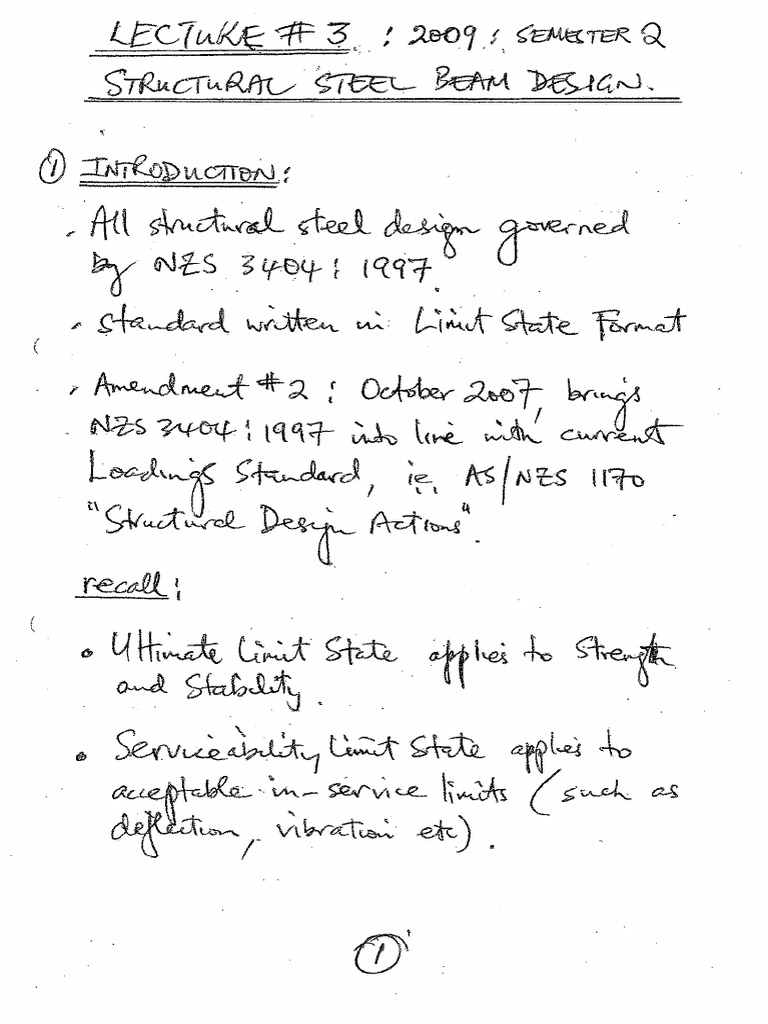 LECTURE # 3 : 2009 : SEMESTER 2
STRUCTURAL STEEL BEAM DESIGN.
① INTRODUCTION:
. All structural steel design governed
by NZS 3404 : 1997.
. Standard written in Limit State Format
. Amendment #2 : October 2007, brings
NZS 3404 : 1997 into line with current
Loadings Standard, ie, AS/NZS 1170
"Structural Design Actions".
recall:
• Ultimate Limit State applies to Strength
and Stability.
• Serviceability Limit State applies to
acceptable in-service limits (such as
deflection, vibration etc).
①